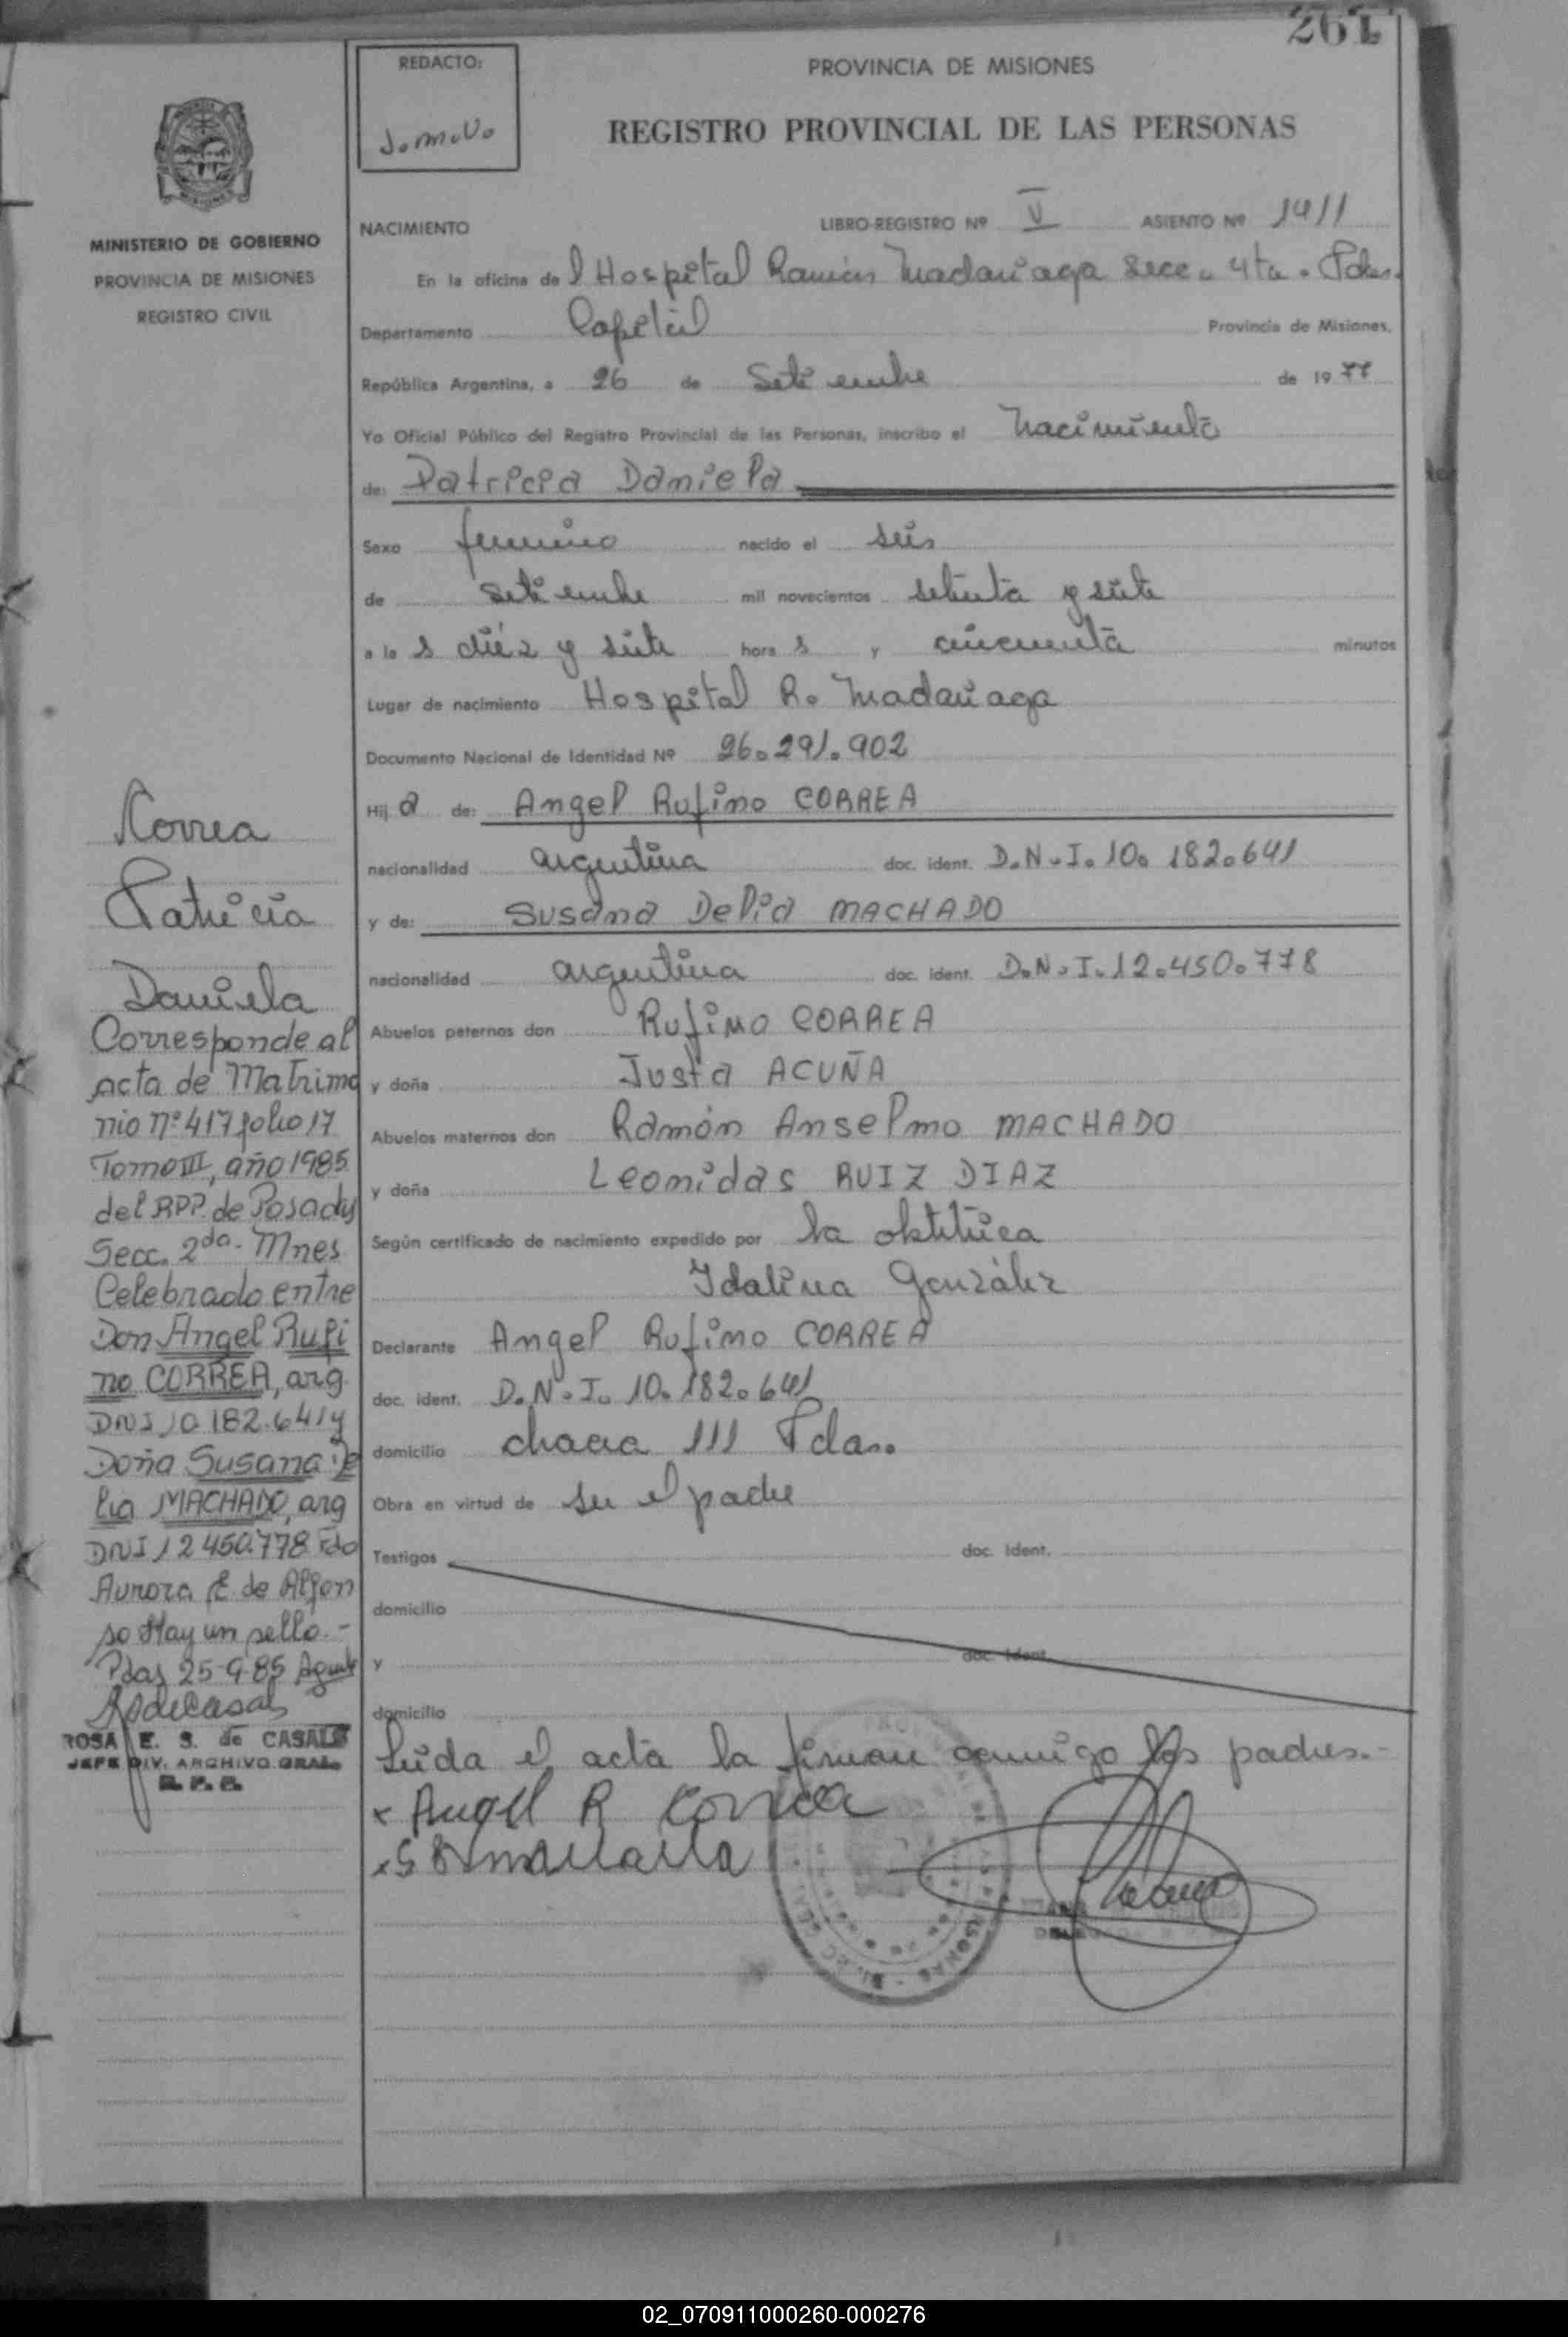 261
REDACTO:
J.M.V.
PROVINCIA DE MISIONES
REGISTRO PROVINCIAL DE LAS PERSONAS
MINISTERIO DE GOBIERNO
PROVINCIA DE MISIONES
REGISTRO CIVIL
NACIMIENTO LIBRO-REGISTRO Nº V ASIENTO Nº 1411
En la oficina del Hospital Ramón Madariaga Secc. 4ta. Pdas.
Departamento Capital Provincia de Misiones.
República Argentina, a 26 de Setiembre de 1977
Yo Oficial Público del Registro Provincial de las Personas, inscribo el Nacimiento
de: Patricia Daniela
Sexo femenino nacido el seis
de setiembre mil novecientos setenta y siete
a las diéz y siete horas y cincuenta minutos
Lugar de nacimiento Hospital R. Madariaga
Documento Nacional de Identidad Nº 26.291.902
Hija de: Angel Rufino CORREA
nacionalidad argentina doc. ident. D.N.I. 10.182.641
y de: Susana Delia MACHADO
nacionalidad argentina doc. ident. D.N.I. 12.450.778
Abuelos paternos don Rufino CORREA
y doña Justa ACUÑA
Abuelos maternos don Ramón Anselmo MACHADO
y doña Leonidas RUIZ DIAZ
Según certificado de nacimiento expedido por la obstétrica
Idalina González
Declarante Angel Rufino CORREA
doc. ident. D.N.I. 10.182.641
domicilio chacra 111 Pdas.
Obra en virtud de ser el padre
Testigos doc. Ident.
domicilio
y doc. Ident.
domicilio
Leida el acta la firman conmigo los padres.-
Angel R Correa
Correa
Patricia
Daniela
Corresponde al
acta de Matrimo
nio Nº 417 folio 17
Tomo III, año 1985
del RPP. de Posadas
Secc. 2da. Mnes
Celebrado entre
Don Angel Rufi
no CORREA, arg.
DNI 10.182.641 y
Doña Susana De
lia MACHADO, arg
DNI 12.450.778 Fdo
Aurora E. de Alfon
so Hay un sello.-
Pdas 25-9-85
ROSA E. S. de CASALS
JEFE DIV. ARCHIVO GRAL.
R.P.P.
02_070911000260-000276